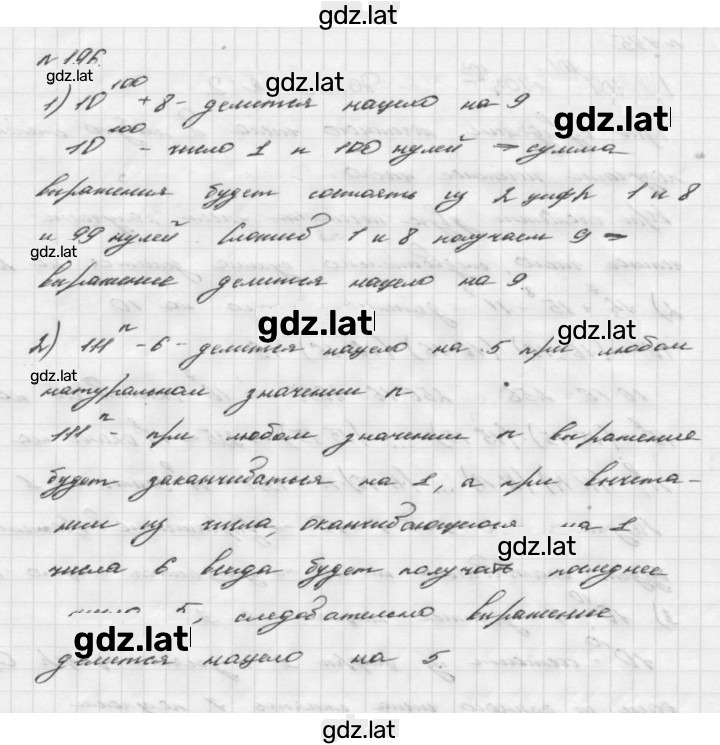 gdz.lat
№ 196.
gdz.lat
gdz.lat
1) 10^100 + 8 - делится нацело на 9
gdz.lat
10^100 - число 1 и 100 нулей => сумма
выражения будет состоять из 2 цифр 1 и 8
и 99 нулей. Сложив 1 и 8 получаем 9 =>
gdz.lat
выражение делится нацело на 9.
gdz.lat
gdz.lat
2) 111^n - 6 - делится нацело на 5 при любом
gdz.lat
натуральном значении n
111^n - при любом значении n выражение
будет заканчиваться на 1, а при вычета-
нии из числа, оканчивающегося на 1
gdz.lat
числа 6 всегда будет получать последнее
число 5, следовательно выражение
gdz.lat
делится нацело на 5.
gdz.lat